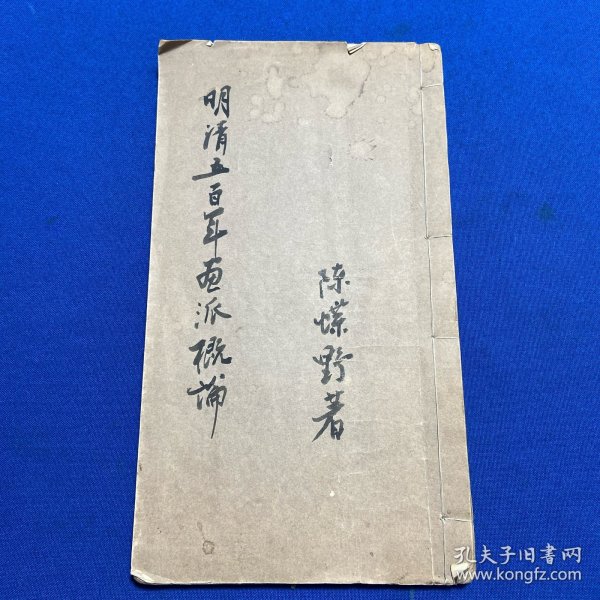 明清五百年画派概論
陳蝶野著
孔夫子旧書网
www.kongfz.com